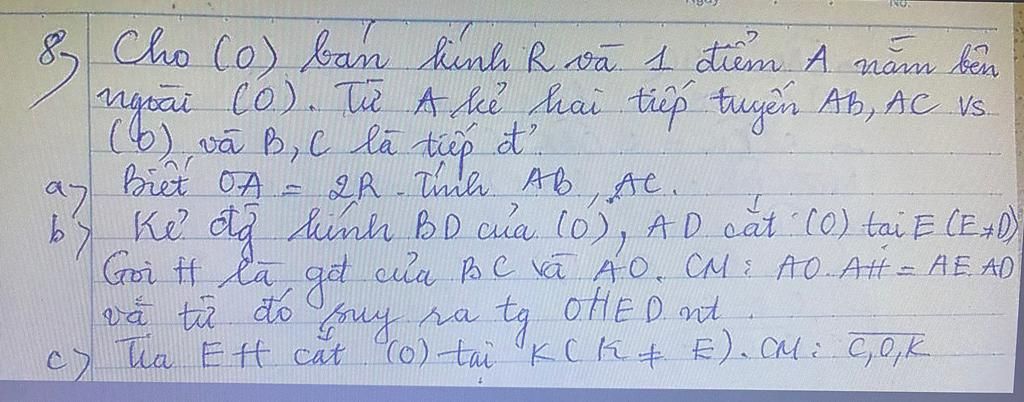 8) Cho (O) bán kính R và 1 điểm A nằm bên
ngoài (O). Từ A kẻ hai tiếp tuyến AB, AC vs
(O) và B, C là tiếp đ'
a) Biết OA = 2R. Tính AB, AC.
b) Kẻ đg kính BD của (O), AD cắt (O) tại E (E≠D)
Gọi H là gđ của BC và AO. CM: AO.AH = AE.AD
và từ đó suy ra tg OHED nt.
c) Tia EH cắt (O) tại K (K ≠ E). CM: C,O,K